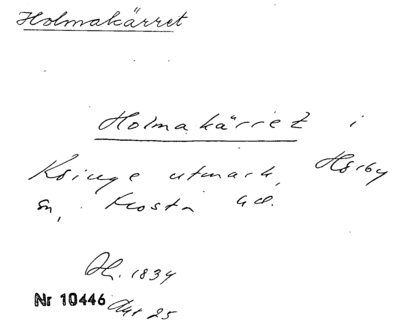 Holmakärret
Holmakärret i
Ksinge utmark, Hörby
sn, Frosta hd.
Lh. 1834
Nr 10446 Akt 25